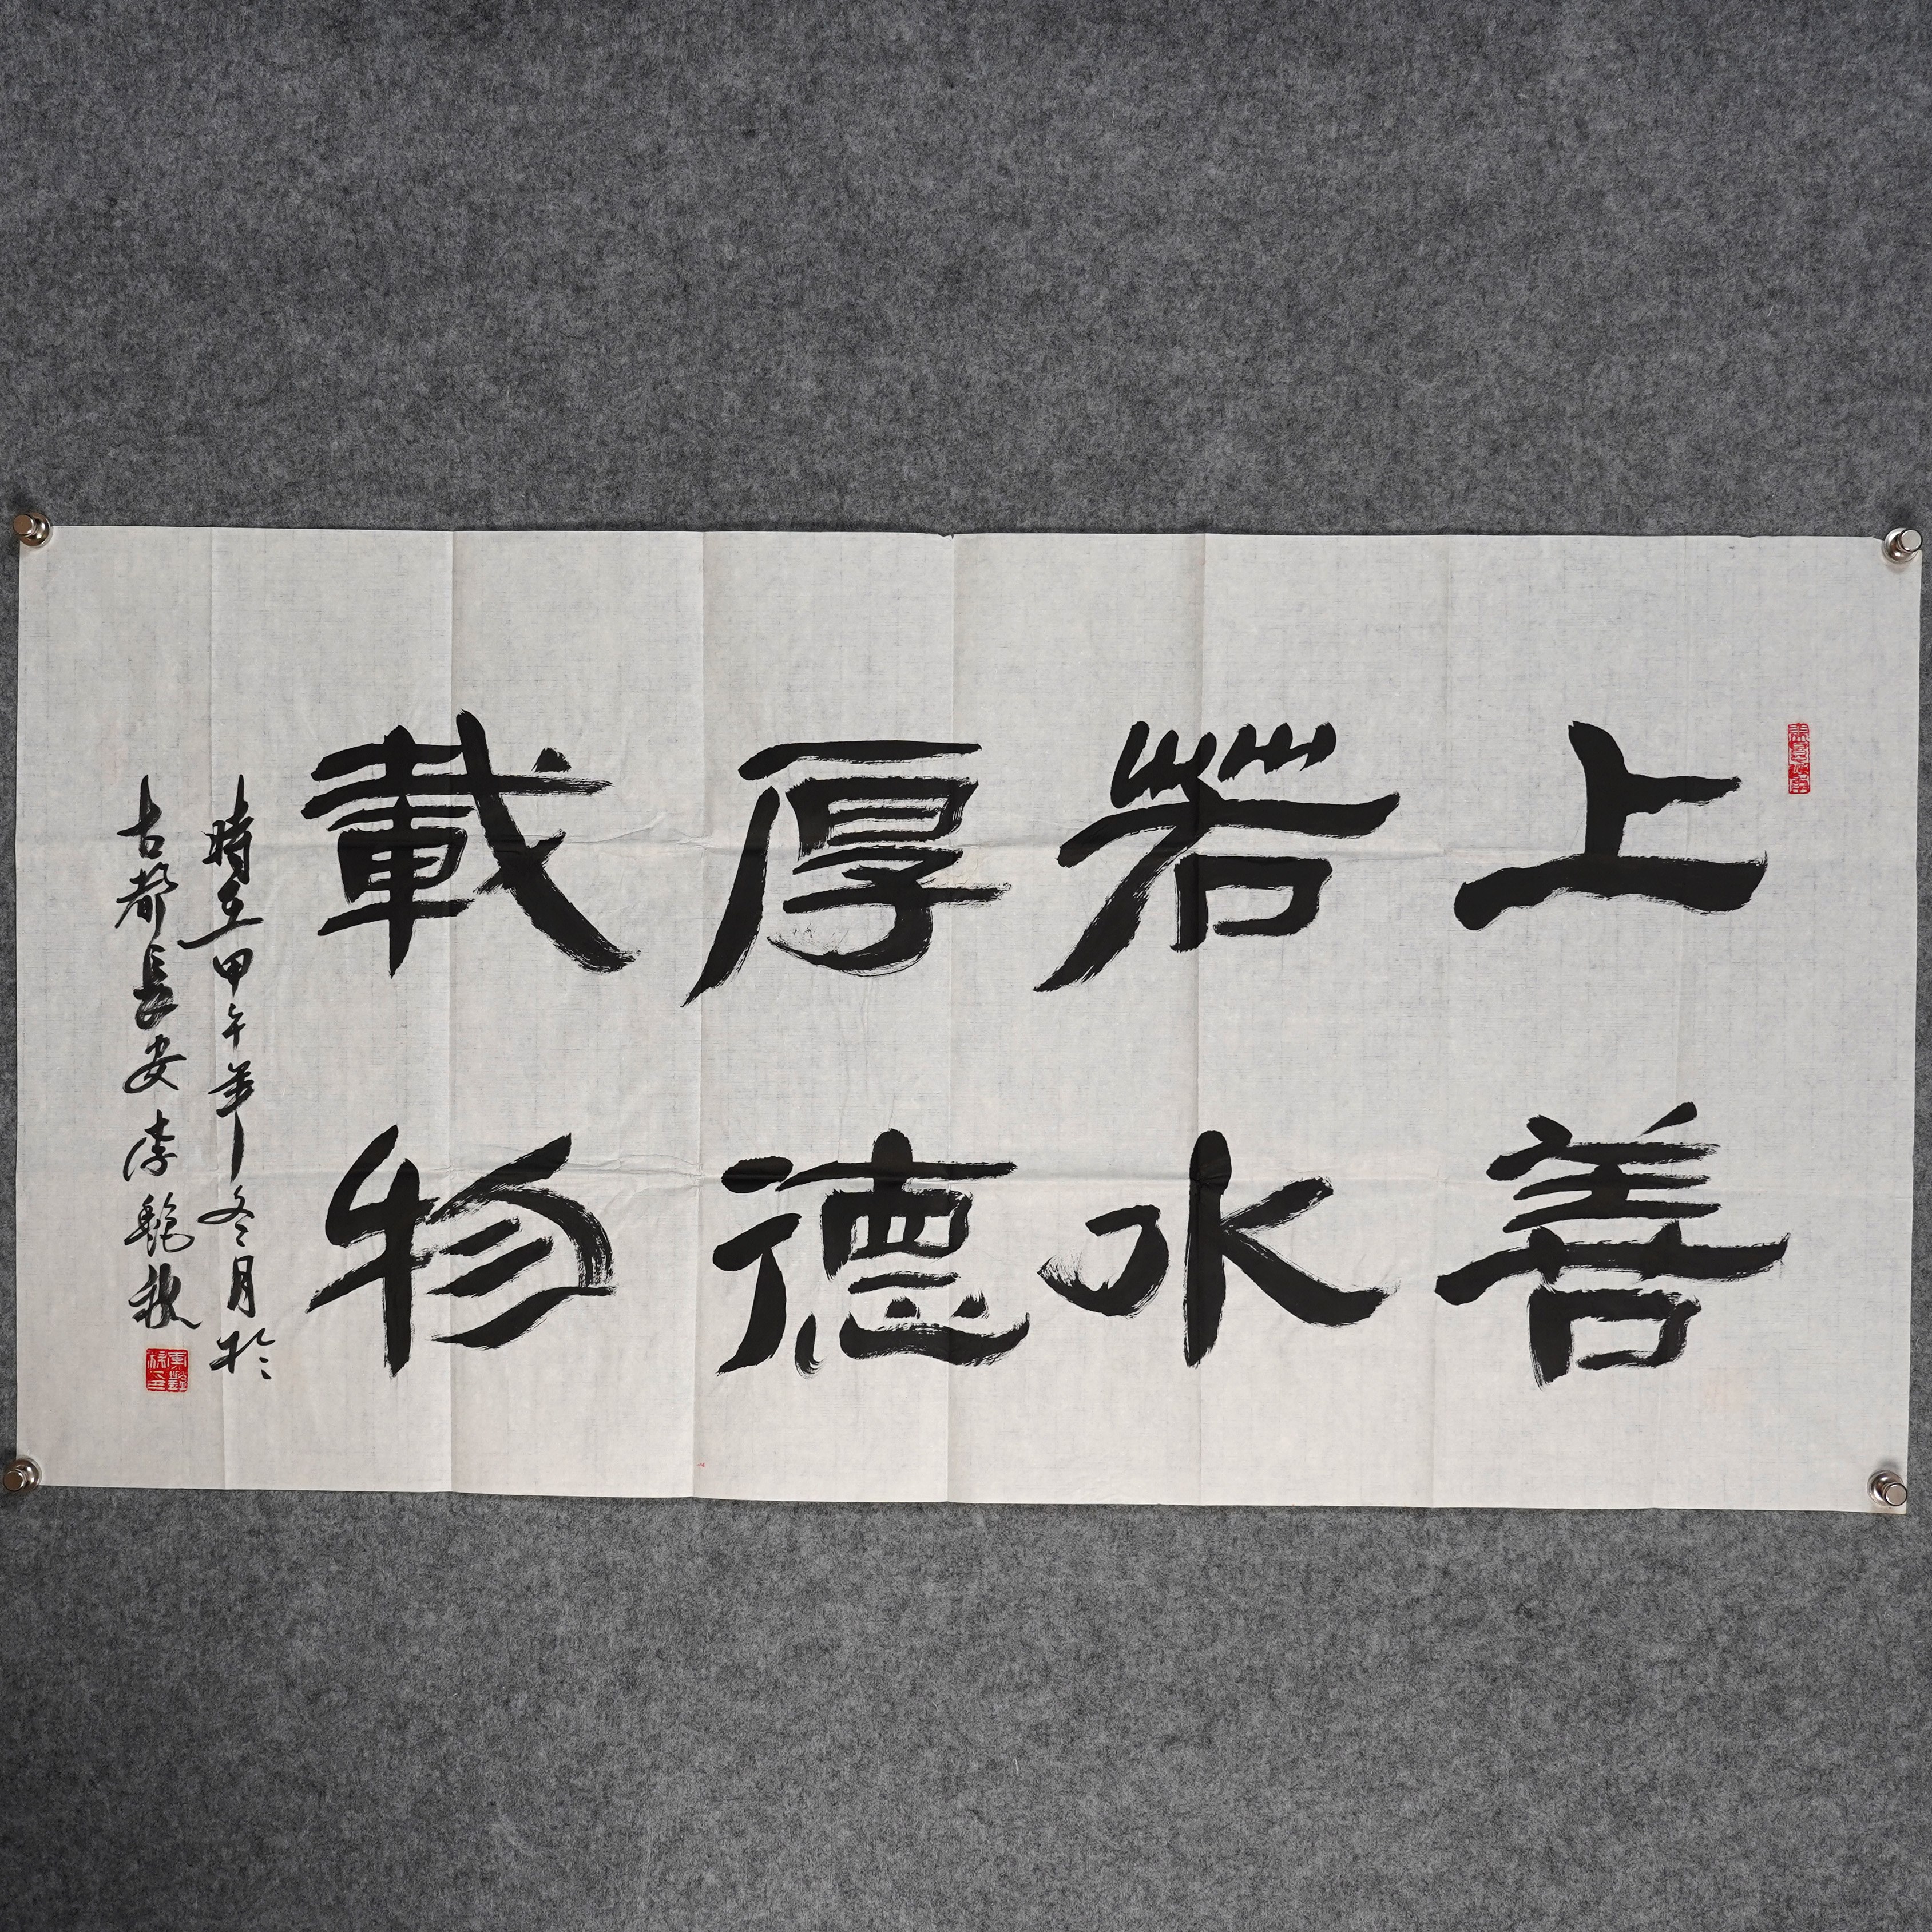 上善
若水
厚德
載物
時在甲午年冬月於
古都長安李艶秋